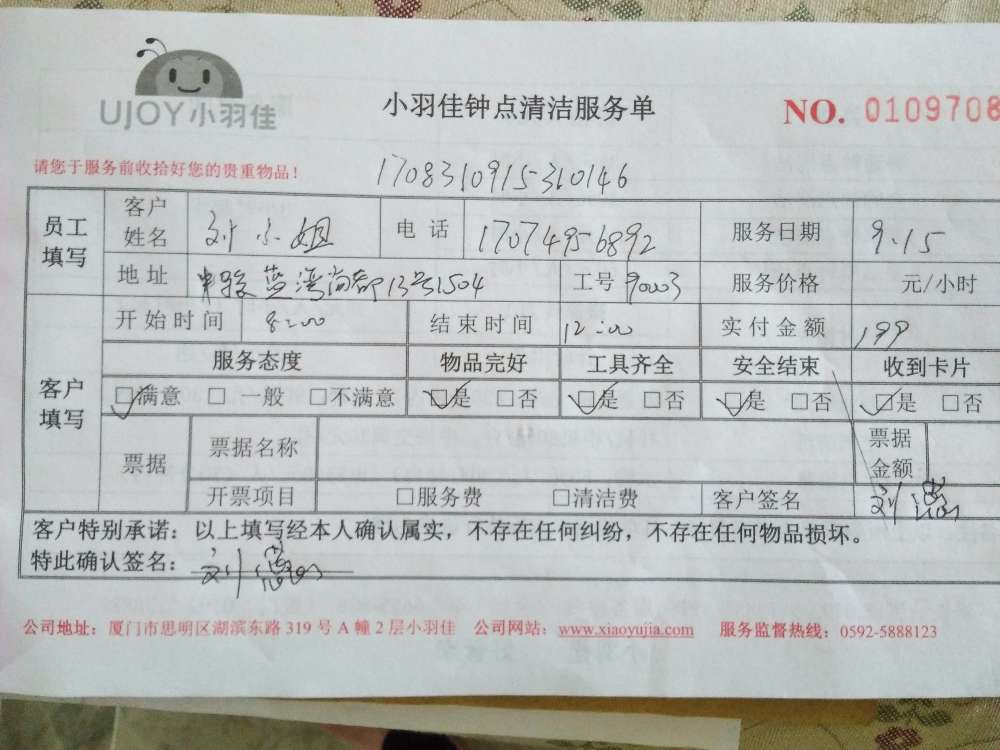 UJOY小羽佳
小羽佳钟点清洁服务单
NO. 0109708
请您于服务前收拾好您的贵重物品！
1708310915310146
员工填写 客户姓名 刘小姐 电话 17074956892 服务日期 9.15
地址 中骏蓝湾尚都13号1504 工号 90003 服务价格 元/小时
客户填写 开始时间 8:00 结束时间 12:00 实付金额 199
服务态度 物品完好 工具齐全 安全结束 收到卡片
□满意 □一般 □不满意 □是 □否 □是 □否 □是 □否 □是 □否
票据 票据名称 票据金额
开票项目 □服务费 □清洁费 客户签名 刘
客户特别承诺：以上填写经本人确认属实，不存在任何纠纷，不存在任何物品损坏。
特此确认签名：刘
公司地址：厦门市思明区湖滨东路 319 号 A 幢 2 层小羽佳 公司网站：www.xiaoyujia.com 服务监督热线：0592-5888123